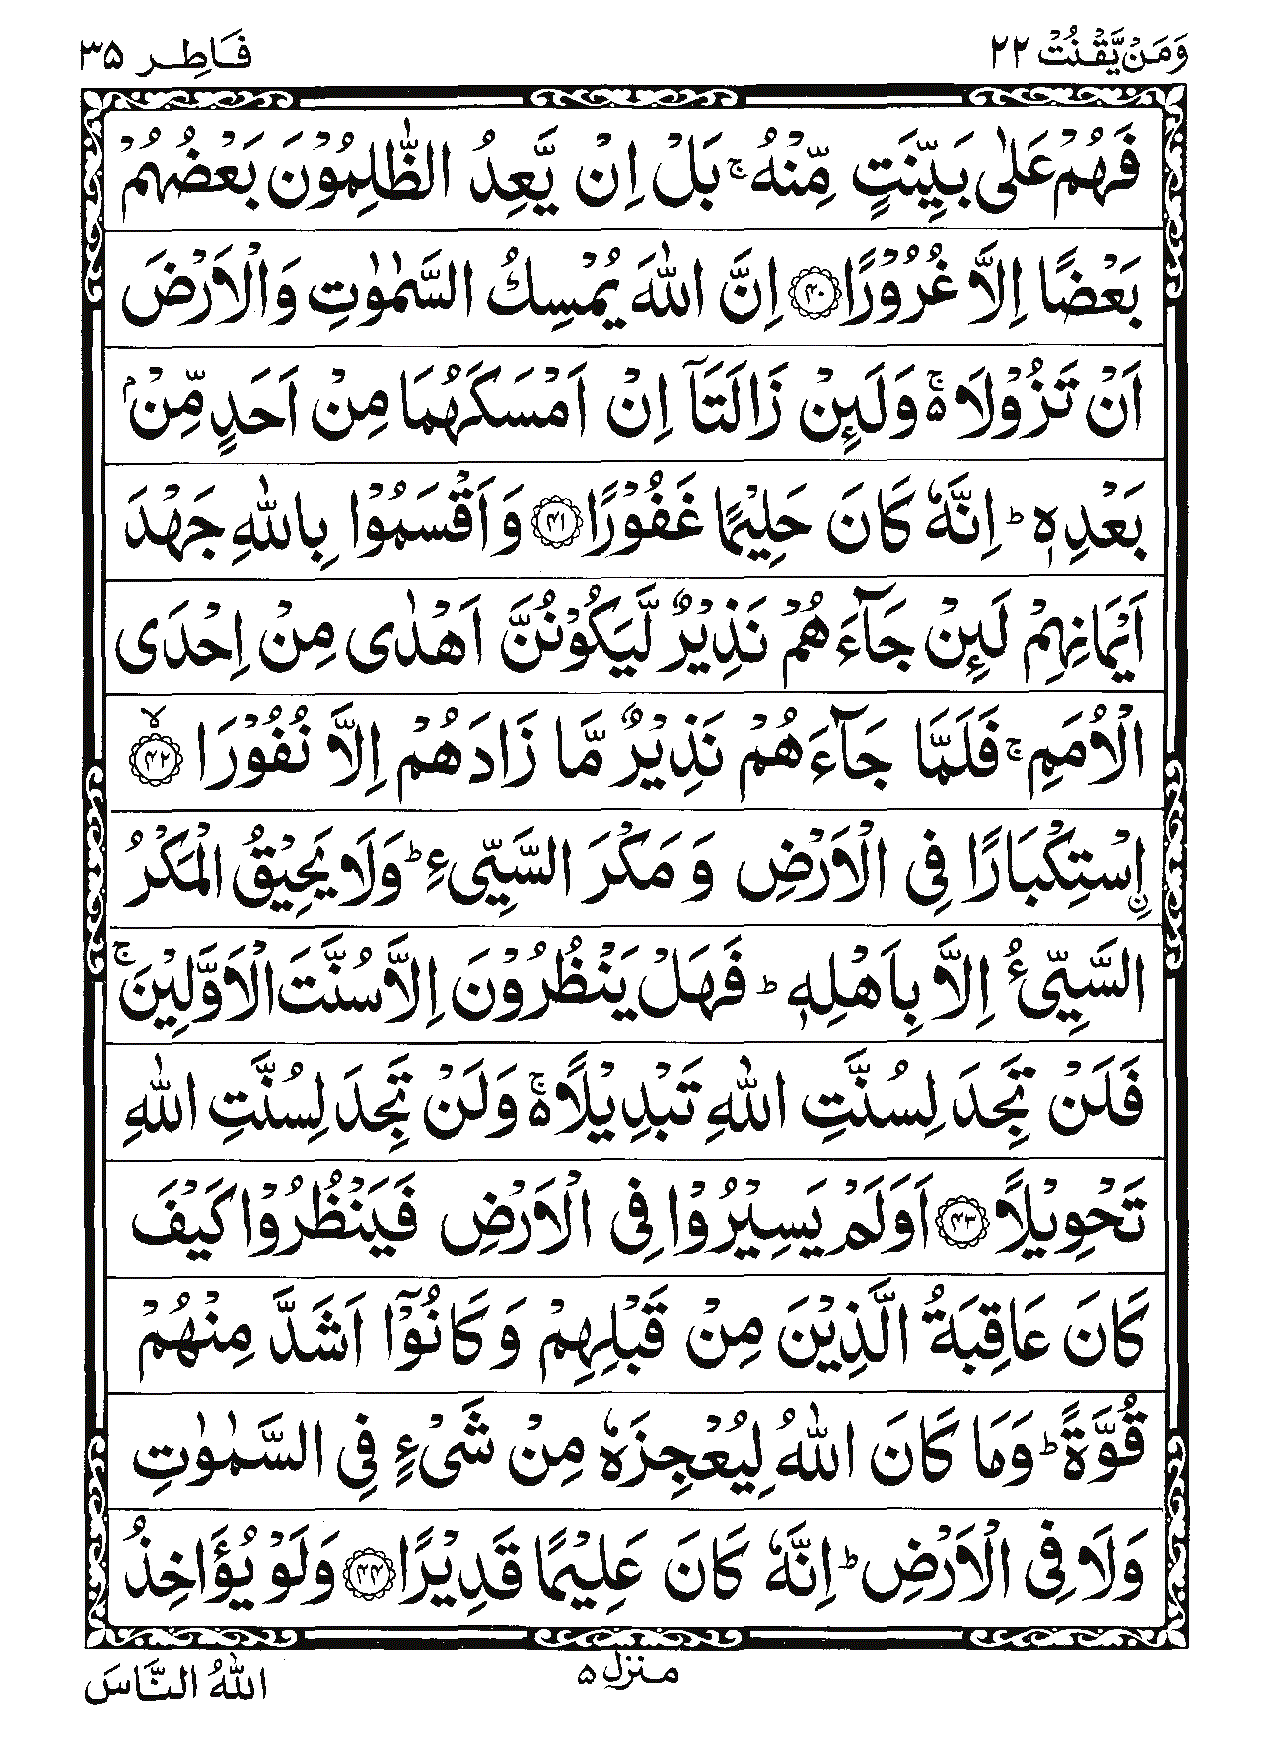 وَمَنْ يَّقْنُتْ ٢٢
فَاطِر ٣٥
فَهُمْ عَلٰى بَيِّنَتٍ مِّنْهُ ۚ بَلْ اِنْ يَّعِدُ الظّٰلِمُوْنَ بَعْضُهُمْ
بَعْضًا اِلَّا غُرُوْرًا ﴿۴۰﴾ اِنَّ اللّٰهَ يُمْسِكُ السَّمٰوٰتِ وَالْاَرْضَ
اَنْ تَزُوْلَا ۚ۬ وَلَىِٕنْ زَالَتَاۤ اِنْ اَمْسَكَهُمَا مِنْ اَحَدٍ مِّنْۢ
بَعْدِهٖ ؕ اِنَّهٗ كَانَ حَلِيْمًا غَفُوْرًا ﴿۴۱﴾ وَاَقْسَمُوْا بِاللّٰهِ جَهْدَ
اَيْمَانِهِمْ لَىِٕنْ جَآءَهُمْ نَذِيْرٌ لَّيَكُوْنُنَّ اَهْدٰى مِنْ اِحْدَى
الْاُمَمِ ۚ فَلَمَّا جَآءَهُمْ نَذِيْرٌ مَّا زَادَهُمْ اِلَّا نُفُوْرَا ﴿۴۲﴾ ۙ
اۨسْتِكْبَارًا فِى الْاَرْضِ وَمَكْرَ السَّيِّئِ ؕ وَلَا يَحِيْقُ الْمَكْرُ
السَّيِّئُ اِلَّا بِاَهْلِهٖ ؕ فَهَلْ يَنْظُرُوْنَ اِلَّا سُنَّتَ الْاَوَّلِيْنَ ۚ
فَلَنْ تَجِدَ لِسُنَّتِ اللّٰهِ تَبْدِيْلًا ۚ۬ وَلَنْ تَجِدَ لِسُنَّتِ اللّٰهِ
تَحْوِيْلًا ﴿۴۳﴾ اَوَلَمْ يَسِيْرُوْا فِى الْاَرْضِ فَيَنْظُرُوْا كَيْفَ
كَانَ عَاقِبَةُ الَّذِيْنَ مِنْ قَبْلِهِمْ وَكَانُوْۤا اَشَدَّ مِنْهُمْ
قُوَّةً ؕ وَمَا كَانَ اللّٰهُ لِيُعْجِزَهٗ مِنْ شَىْءٍ فِى السَّمٰوٰتِ
وَلَا فِى الْاَرْضِ ؕ اِنَّهٗ كَانَ عَلِيْمًا قَدِيْرًا ﴿۴۴﴾ وَلَوْ يُؤَاخِذُ
منزل ۵
اللّٰهُ النَّاسَ